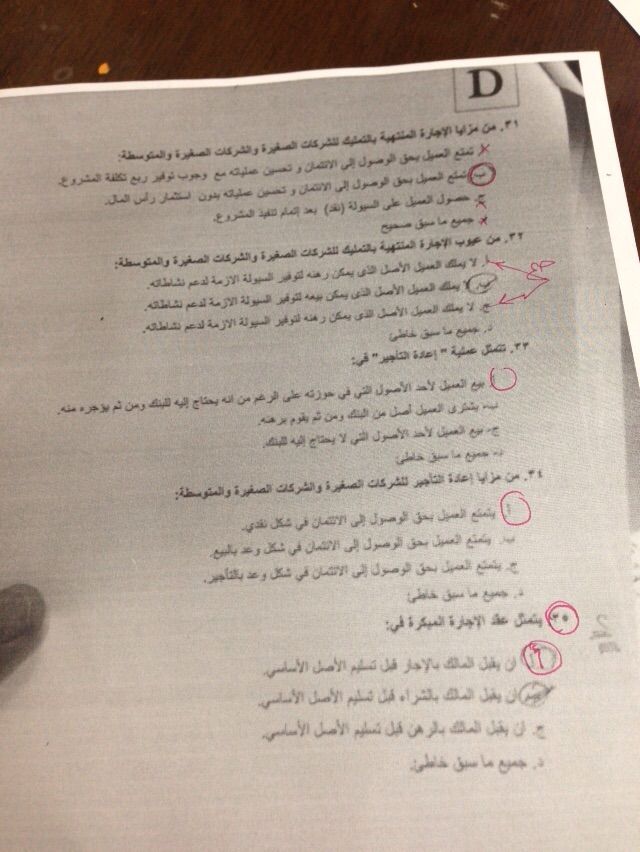 D
٣١. من مزايا الإجارة المنتهية بالتمليك للشركات الصغيرة والشركات الصغيرة والمتوسطة:
تمتع العميل بحق الوصول إلى الائتمان و تحسين عملياته مع وجوب توفير ربع تكلفة المشروع.
ب. تمتع العميل بحق الوصول إلى الائتمان و تحسين عملياته بدون استثمار رأس المال.
ج. حصول العميل على السيولة (نقد) بعد إتمام تنفيذ المشروع.
جميع ما سبق صحيح
٣٢. من عيوب الإجارة المنتهية بالتمليك للشركات الصغيرة والشركات الصغيرة والمتوسطة:
أ. لا يملك العميل الأصل الذى يمكن رهنه لتوفير السيولة الازمة لدعم نشاطاته.
ب. لا يملك العميل الأصل الذى يمكن بيعه لتوفير السيولة الازمة لدعم نشاطاته.
ج. لا يملك العميل الأصل الذى يمكن رهنه لتوفير السيولة الازمة لدعم نشاطاته.
د. جميع ما سبق خاطئ
٣٣. تتمثل عملية " إعادة التأجير" في:
أ. بيع العميل لأحد الأصول التي في حوزته على الرغم من انه يحتاج إليه للبنك ومن ثم يؤجره منه.
ب- يشترى العميل أصل من البنك ومن ثم يقوم برهنه.
ج- بيع العميل لأحد الأصول التي لا يحتاج إليه للبنك.
د- جميع ما سبق خاطئ
٣٤. من مزايا إعادة التأجير للشركات الصغيرة والشركات الصغيرة والمتوسطة:
أ. يتمتع العميل بحق الوصول إلى الائتمان في شكل نقدي.
ب. يتمتع العميل بحق الوصول إلى الائتمان في شكل وعد بالبيع.
ج. يتمتع العميل بحق الوصول إلى الائتمان في شكل وعد بالتأجير.
د. جميع ما سبق خاطئ
٣٥. يتمثل عقد الإجارة المبكرة في:
أ. ان يقبل المالك بالإجار قبل تسليم الأصل الأساسي.
ب. ان يقبل المالك بالشراء قبل تسليم الأصل الأساسي.
ج. ان يقبل المالك بالرهن قبل تسليم الأصل الأساسي.
د. جميع ما سبق خاطئ: